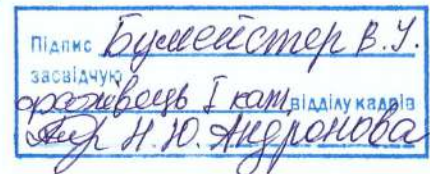 Підпис Бумейстер В.У.
засвідчую
фахівець І кат. відділу кадрів
Н.Ю. Андронова